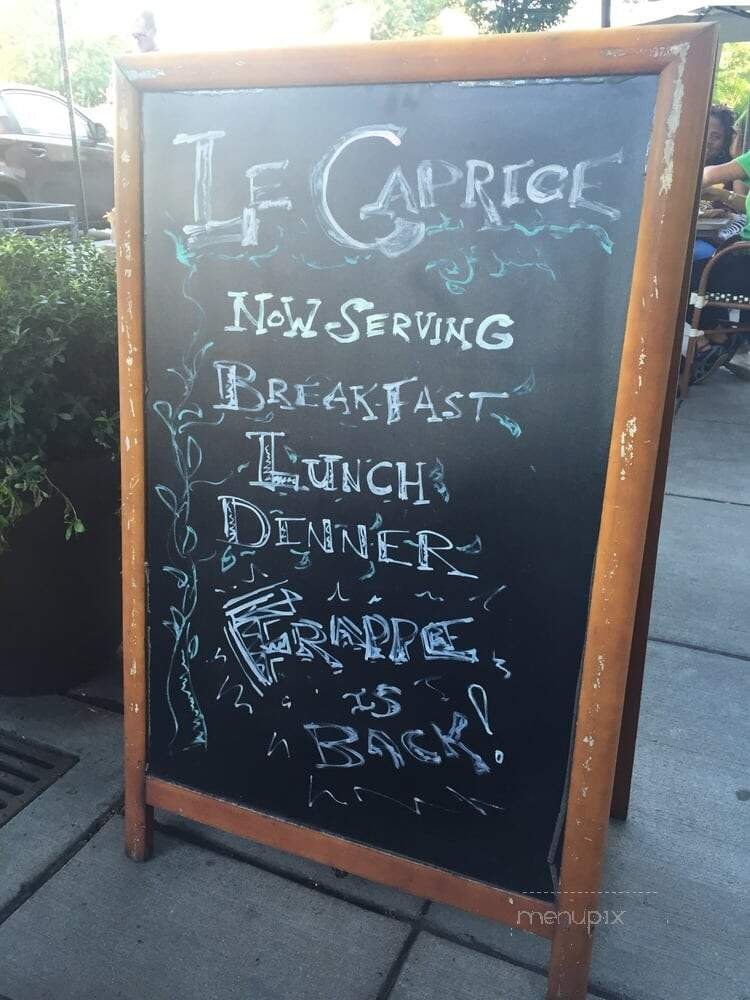 LE CAPRICE
NOW SERVING
BREAKFAST
LUNCH
DINNER
FRAPPE
IS
BACK!
menupix